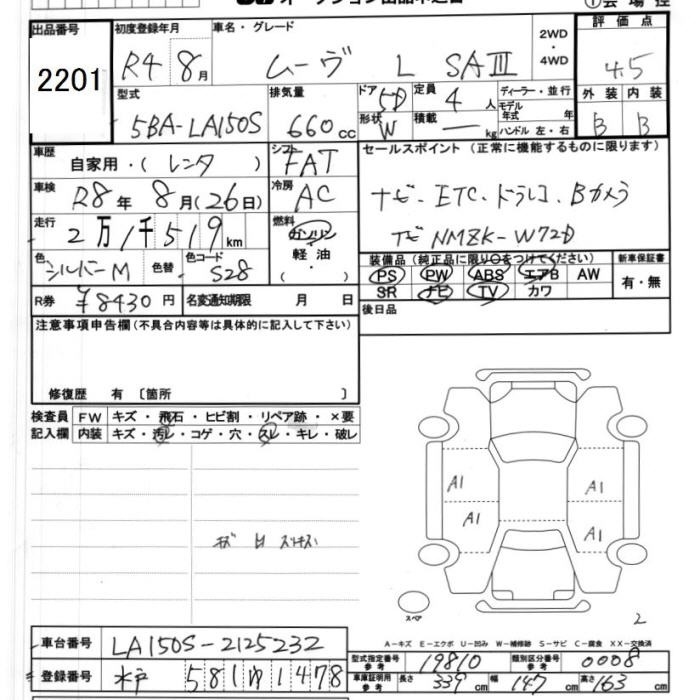 ①会場控
出品番号 初度登録年月 車名・グレード 2WD・4WD 評価点
2201 R4 8月 ムーヴ L SAⅢ 4.5
型式 排気量 ドア 定員 ディーラー・並行 外装 内装
5BA-LA150S 660cc 5D 4人 モデル年式 年 B B
形状 W 積載 ― kg ハンドル 左・右
車歴 自家用・(レンタ) シフト FAT セールスポイント(正常に機能するものに限ります)
車検 R8年 8月(26日) 冷房 AC ナビ・ETC・ドラレコ・Bカメラ
走行 2万1千519km 燃料 ガソリン 軽油・ ナビ NMZK-W72D
色 シルバーM 色替 色コード S28
装備品(純正品に限り○をつけてください) 新車保証書
PS PW ABS エアB AW 有・無
SR ナビ TV カワ
R券 ¥8430円 名変通知期限 月 日 後日品
注意事項申告欄(不具合内容等は具体的に記入して下さい)
修復歴 有〔箇所 〕
検査員 FW キズ・飛石・ヒビ割・リペア跡・×要
記入欄 内装 キズ・汚レ・コゲ・穴・スレ・キレ・破レ
A1 A1
A1 A1
スペア 2
A-キズ E-エクボ U-凹み W-補修跡 S-サビ C-腐食 XX-交換済
車台番号 LA150S-2125232 型式指定番号 参考 19810 類別区分番号 参考 0008
登録番号 水戸 581ゆ1478 車庫証明用 参考 長さ 339cm 幅 147cm 高さ 163cm